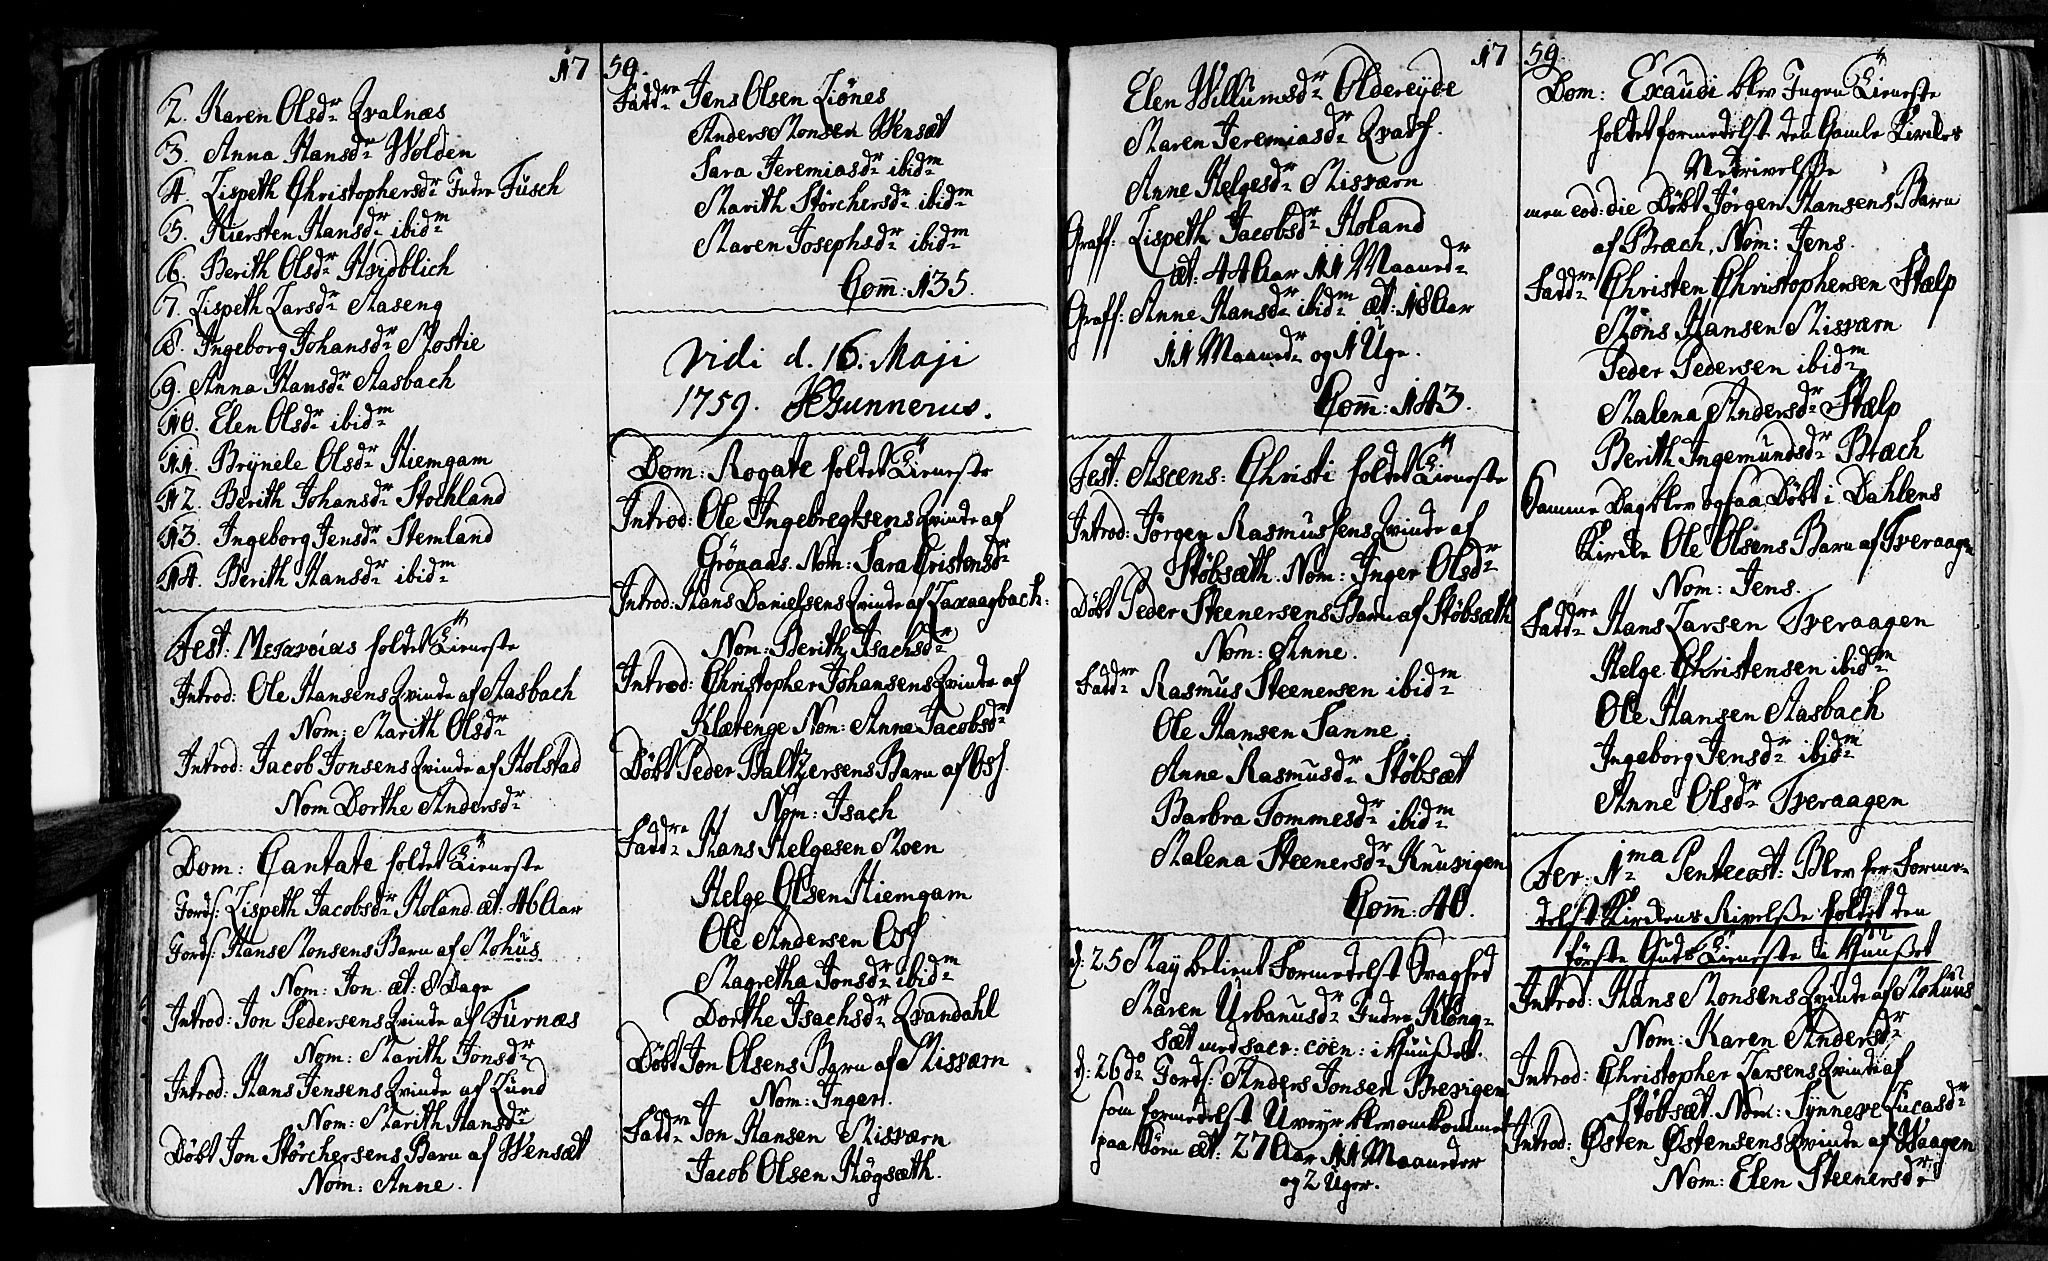 17 59.
2. Karen Olsdr Qvalnæs
3. Anna Hansdr Wolden
4. Lispeth Christophersdr Indre Füsch
5. Kiersten Hansdr ibidm
6. Berith Olsdr Hvidblich
7. Lispeth Larsdr Aaseng
8. Ingeborg Johansdr Mostie
9. Anna Hansdr Aasbach
10. Elen Olsdr ibidm
11. Brÿnele Olsdr Hiemgam
12. Berith Johansdr Stochland
13. Ingeborg Jensdr Stemland
14. Berith Hansdr ibidm
Fest: Μετανοίας holdet Tieneste
Introd: Ole Hansens Qvinde af Aasbach
Nom: Marith Olsdr
Introd: Jacob Jonsens Qvinde af Holstad
Nom Dorthe Andersdr
Dom: Cantate holdet Tieneste
Jords: Lispeth Jacobsdr Holand æt: 46 Aar
Jords: Hans Monsens Barn af Mohus
Nom: Jon æt: 8 Dage
Introd: Jon Pedersens Qvinde af Furnæs
Nom: Marith Jonsdr
Introd: Hans Jensens Qvinde af Lund
Nom: Marith Hansdr
Döbt Jon Störchersens Barn af Wensæt
Nom: Anne.
Faddre Jens Olsen Liönes
Anders Monsen Wensæt
Sara Jeremiasdr ibidm
Marith Störchersdr ibidm
Maren Josephsdr ibidm
Com: 135.
Vidi d. 16. Maji
1759. JEGunnerus.
Dom: Rogate holdet Tieneste
Introd: Ole Ingebregtsens Qvinde af
Grönaas. Nom: Sara Cristensdr
Introd: Hans Danielsens Qvinde af Laxaagbach:
Nom: Berith Isachsdr
Introd: Christopher Johansens Qvinde af
Klætenge Nom: Anne Jacobsdr
Döbt Peder Baltzersens Barn af Os.
Nom: Isach
Faddre Hans Helgesen Moen
Helge Olsen Hiemgam
Ole Andersen Os
Magretha Jonsdr ibidm
Dorthe Isachsdr Qvandahl
Döbt Jon Olsens Barn af Misværn
Nom: Inger.
Faddre Jon Hansen Misværn
Jacob Olsen Högsæth.
17 59
Elen Willumsdr Oldereÿde
Maren Jeremiasdr
Anne Helgesdr Misværn
Graff: Lispeth Jacobsdr Holand
æt: 44 Aar 11 Maanedr
Graff: Anne Hansdr ibidm æt: 18 Aar
11 Maanedr og 1 Uge.
Com: 143.
Fest: Ascens: Christi holdet Tieneste
Introd: Jörgen Rasmussens Qvinde af
Stöbsæth. Nom: Inger Olsdr
Döbt Peder Steenersens Barn af Stöbsæth
Nom: Anne.
Faddre Rasmus Steenersen ibidm
Ole Hansen Sanne
Anne Rasmusdr Stöbsæt
Barbra Tommesdr ibidm
Malena Steenersdr Knuvigen
Com: 40.
d: 25 Maÿ betient formedelst Svaghed
Maren Urbanusdr Indre Klöng-
sæt med sacr: coen: i Huuset.
d: 26 do Jords: Anders Jonsen Brevigen
som formedelst Uveyr blev omkommet
paa Söen æt: 27 Aar 11 Maaneder
og 2 Uger.
Dom: Exaudi blev Ingen Tieneste
holdet formedelst den Gamle Kirkes
Nedrivelse
men eod: die Döbt Jörgen Hansens Barn
af Bræch, Nom: Jens.
Faddre Christen Christophersen Stælp
Möns Hansen Misværn
Peder Pedersen ibidm
Malena Andersdr Stælp
Berith Ingemundsdr Bræch
Samme Dag blev ogsaa Döbt i Dahlens
Kirke Ole Olsens Barn af Tveraagen
Nom: Jens.
Faddre Hans Larsen Tveraagen
Helge Christensen ibidm
Ole Hansen Aasbach
Ingeborg Jensdr ibidm
Anne Olsdr Tveraagen
Fer: 1ma Pentecost: Blev her forme-
delst Kirkens Rivelse holdet den
förste Guds Tieneste i Huuset
Introd: Hans Monsens Qvinde af Mohuus
Nom: Karen Andersdr
Introd: Christopher Larsens Qvinde af
Stöbsæt. Nom: Synneve Lucasdr
Introd: Østen Østensens Qvinde af Waagen
Nom: Elen Steenersdr